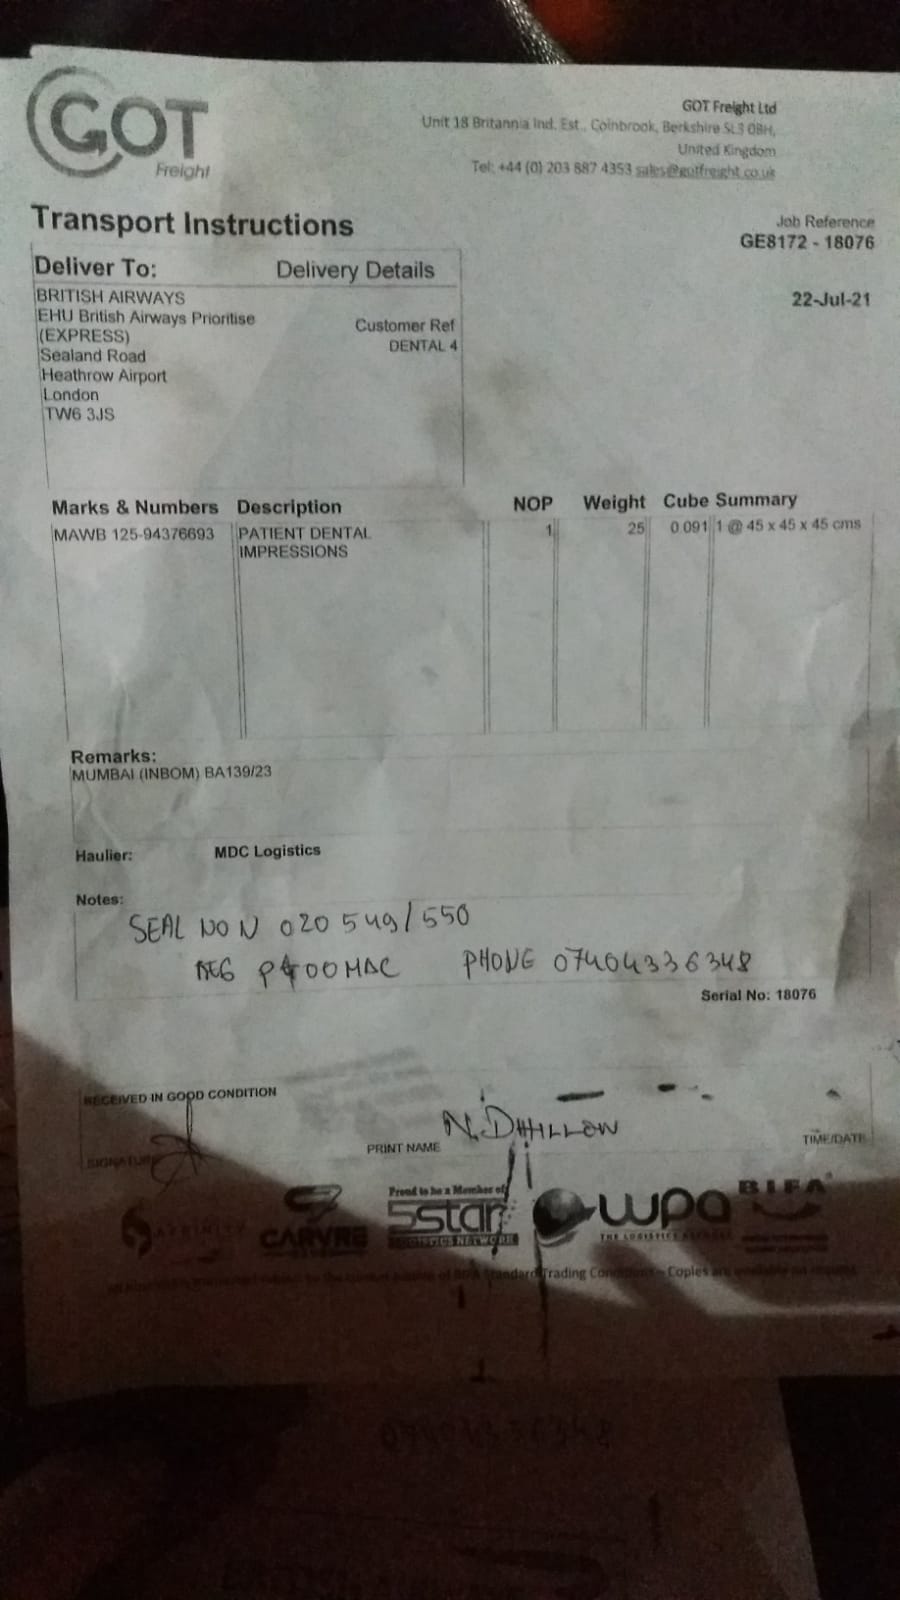 GOT
Freight
GOT Freight Ltd
Unit 18 Britannia Ind. Est., Coinbrook, Berkshire SL3 0BH,
United Kingdom
Tel: +44 (0) 203 887 4353 sales@gotfreight.co.uk
Transport Instructions
Job Reference
GE8172 - 18076
22-Jul-21
Deliver To: Delivery Details
BRITISH AIRWAYS
EHU British Airways Prioritise
(EXPRESS)
Sealand Road
Heathrow Airport
London
TW6 3JS
Customer Ref
DENTAL 4
Marks & Numbers Description NOP Weight Cube Summary
MAWB 125-94376693 PATIENT DENTAL 1 25 0.091 1 @ 45 x 45 x 45 cms
IMPRESSIONS
Remarks:
MUMBAI (INBOM) BA139/23
Haulier: MDC Logistics
Notes:
SEAL NO N 020 549/550
REG P400MAC PHONE 07404336348
Serial No: 18076
RECEIVED IN GOOD CONDITION
SIGNATURE
PRINT NAME N. DHILLON
TIME/DATE
Proud to be a Member of
5star
LOGISTICS NETWORK
CARVRE
wpa
THE LOGISTICS NETWORK
BIFA
Standard Trading Conditions - Copies are available on request